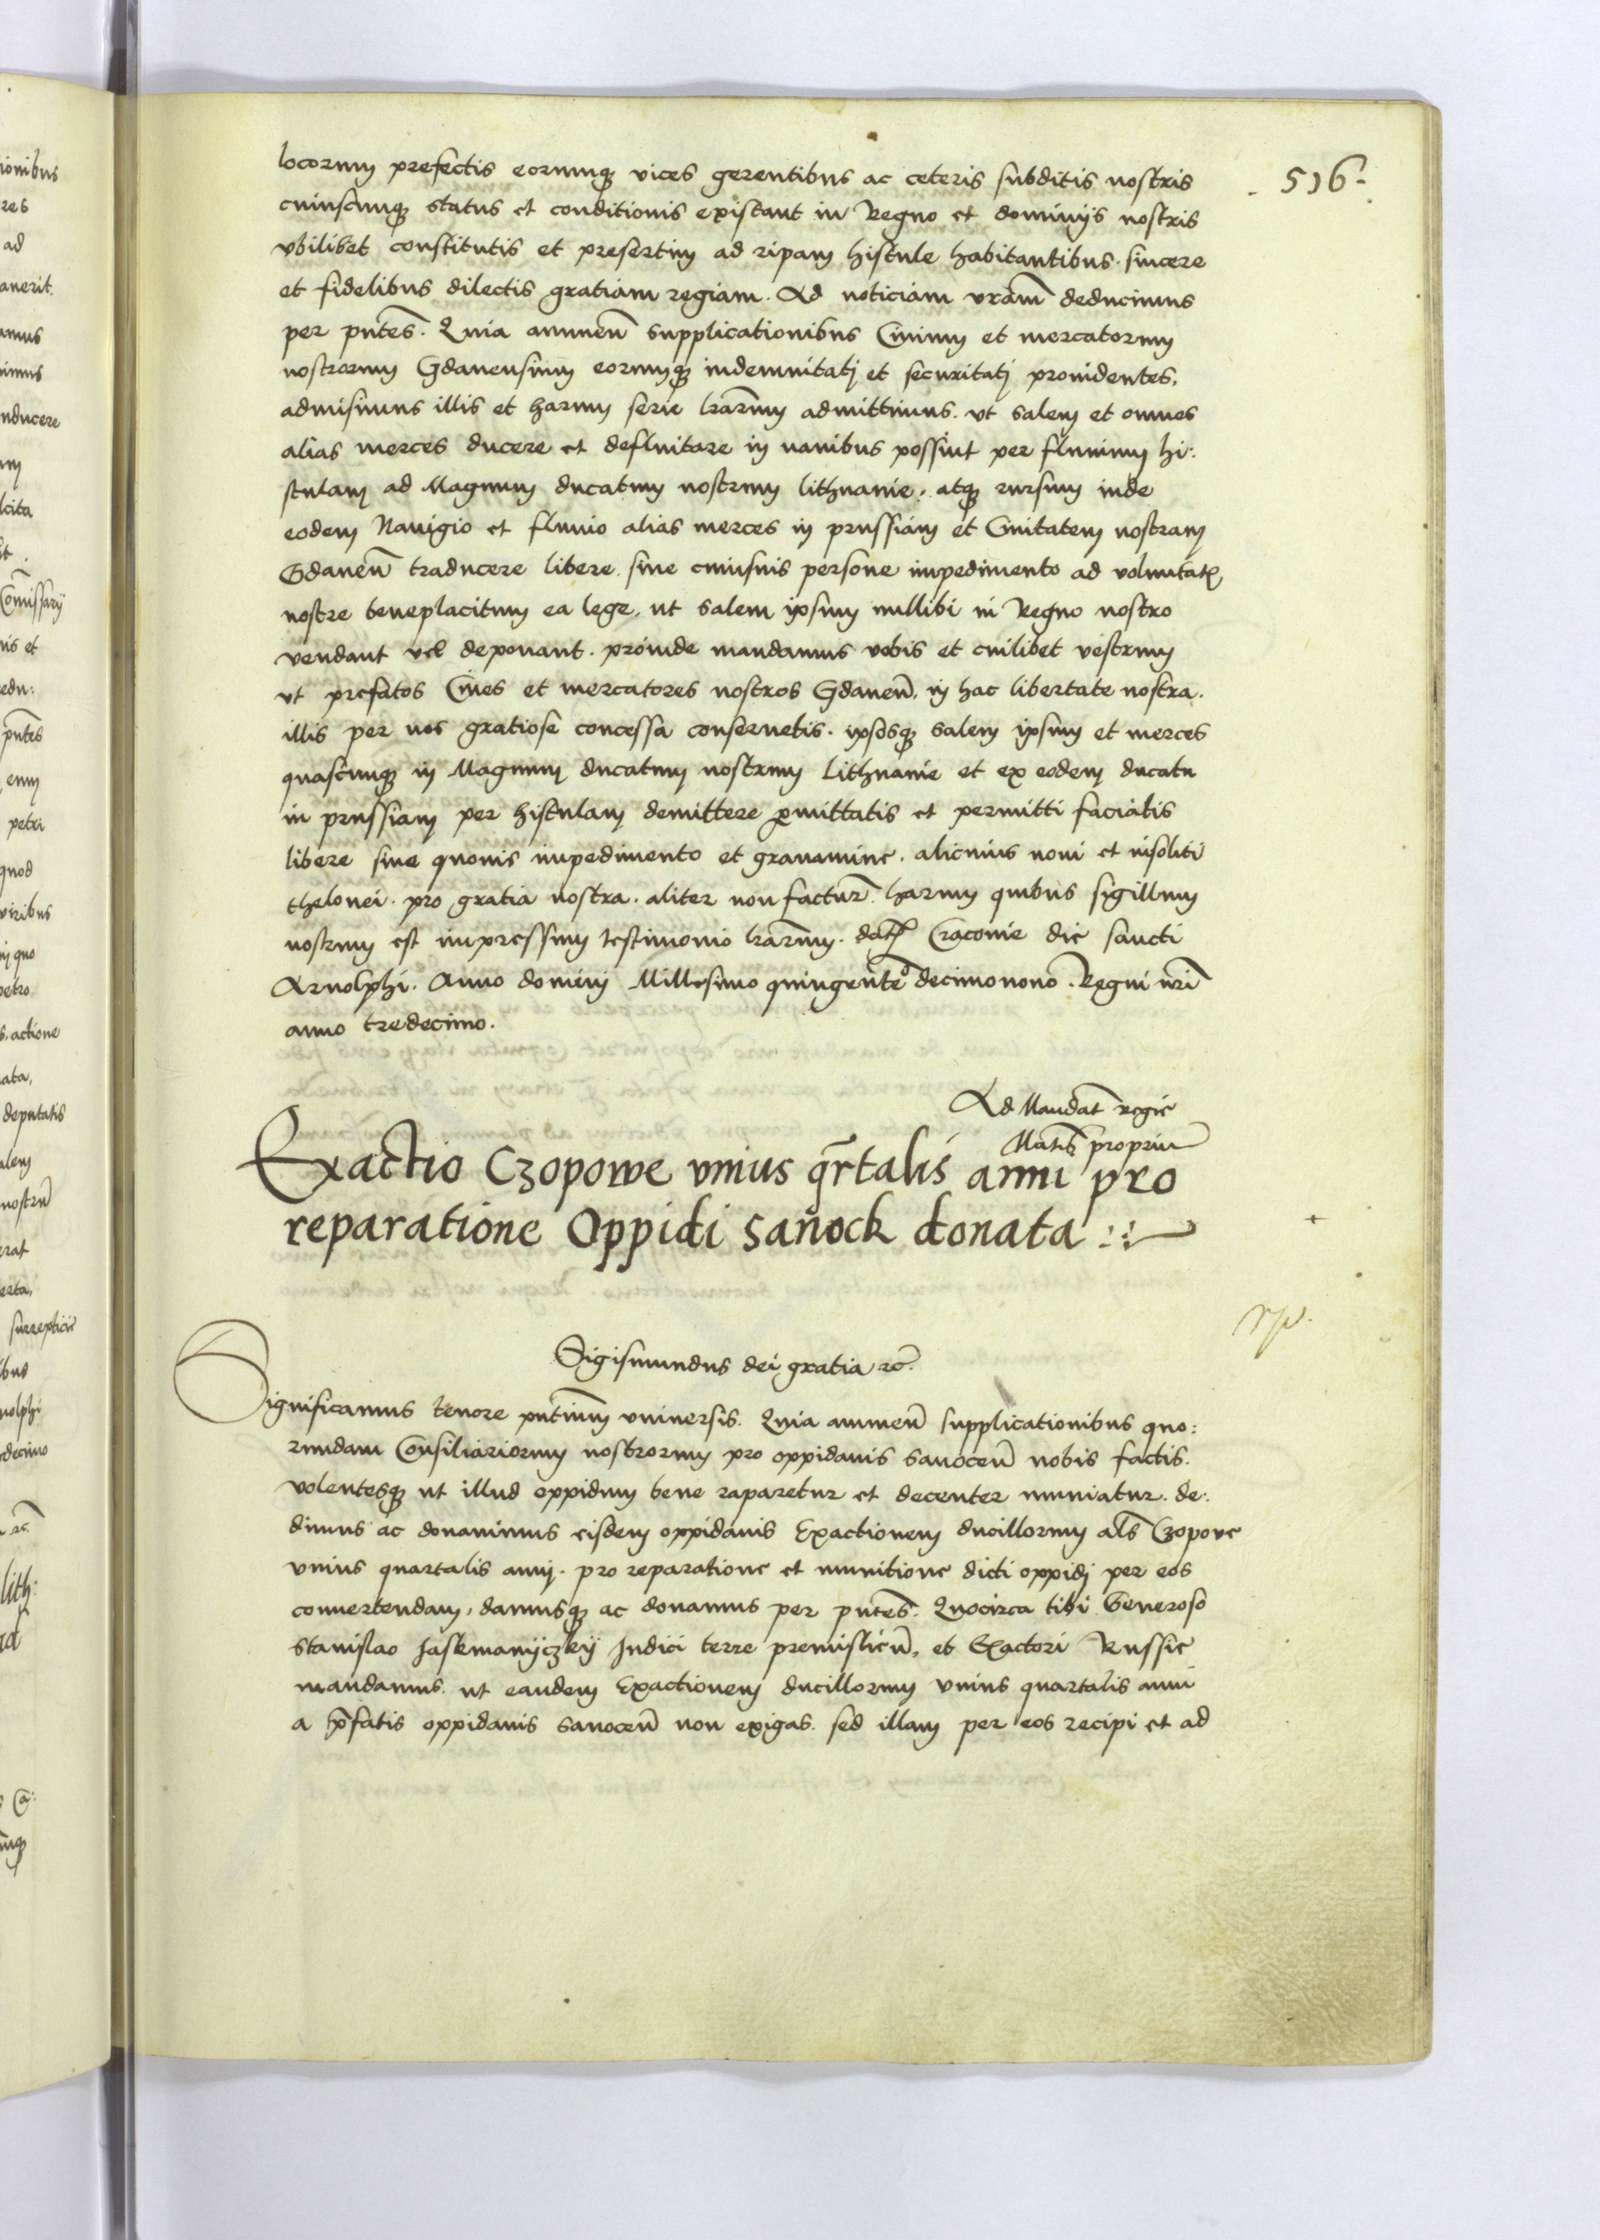 516
locorum prefectis eorumq3 vices gerentibus ac ceteris subditis nostris
cuiuscunq3 status et conditionis existant in Regno et dominijs nostris
vbilibet constitutis et presertim ad ripam histule habitantibus. sincere
et fidelibus dilectis gratiam regiam. Ad noticiam vram̄ deducimus
per pn̄tes. Quia annuen̄ supplicationibus Ciuium et mercatorum
nostrorum Gdanensium eorumq3 indemnitatj et securitatj prouidentes,
admisimus illis et harum serie lr̄arum admittimus. vt salem et omnes
alias merces ducere et defluitare in nauibus possint per fluuium hi:
stulam ad Magnum ducatum nostrum lithuanie, atq3 rursum inde
eodem Nauigio et fluuio alias merces in prussiam et Ciuitatem nostram
Gdanen̄ traducere libere sine cuiusuis persone impedimento ad voluntatꝭ
nostre beneplacitum ea lege, ut salem ipsum nullibi in Regno nostro
vendant vel deponant. proinde mandamus vobis et cuilibet vestrum
vt prefatos Ciues et mercatores nostros Gdanen̄. in hac libertate nostra.
illis per nos gratiose concessa conseruetis. ipsosq3 salem ipsum et merces
quascunq3 in Magnum ducatum nostrum Lithuanie et ex eodem ducatu
in prussiam per histulam demittere ꝑmittatis et permitti faciatis
libere sine quouis impedimento et grauamine. alicuius noui et insoliti
thelonei. pro gratia nostra. aliter non factur̄. harum quibus sigillum
nostrum est impressum testimonio lr̄arum. datꝭ Cracouie die sancti
Arnolphi. Anno dominj Millesimo quingenteᵒ decimonono. Regni nr̄i
anno tredecimo.
Ad Mandat̄ regie
Matis̄ propriu̅
Exactio Czopowe vnius qr̄talis anni pro
reparatione Oppidi Sanock donata
Sigismundus dei gratia rc̄.
Significamus tenore pn̄tium vniuersis. Quia annuen̄ supplicationibus quo:
rundam Consiliariorum nostrorum pro oppidanis sanocen̄ nobis factis.
volentesq3 ut illud oppidum bene raparetur et decenter muniatur. de:
dimus ac donauimus eisdem oppidanis Exactionem ducillorum als̄ Czopowe
vnius quartalis annj. pro reparatione et munitione dicti oppidj per eos
conuertendam, damusq3 ac donamus per pn̄tes. Quocirca tibi Generoso
Stanislao Jaskmanyczkÿ Judici terre premislien̄, et Exactori Russie
mandamus. ut eandem Exactionem ducillorum vnius quartalis anni
a p̄fatis oppidanis sanocen̄ non exigas. sed illam per eos recipi et ad